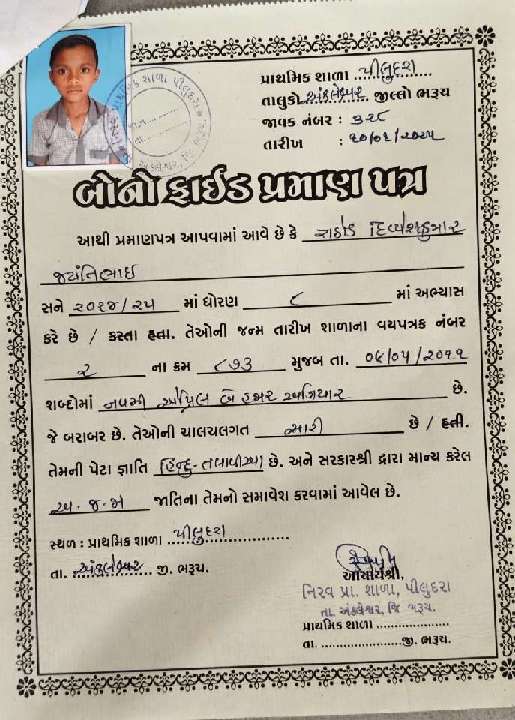 પ્રાથમિક શાળા ..પીલુદરા........
તાલુકો અંકલેશ્વર જીલ્લો ભરૂચ
જાવક નંબર : ૩૨૮
તારીખ :
બોનોફાઈડ પ્રમાણ પત્ર
આથી પ્રમાણપત્ર આપવામાં આવે છે કે રાઠોડ દિવ્યેશકુમાર
જયંતિભાઈ
સને ૨૦૨૪/૨૫ માં ધોરણ ૮ માં અભ્યાસ
કરે છે / કરતા હતા. તેઓની જન્મ તારીખ શાળાના વયપત્રક નંબર
૨ ના ક્રમ ૮૭૩ મુજબ તા.
શબ્દોમાં નવમી બે હજાર અગિયાર છે.
જે બરાબર છે. તેઓની ચાલચલગત સારી છે / હતી.
તેમની પેટા જ્ઞાતિ હિન્દુ-તલાવીયા છે. અને સરકારશ્રી દ્વારા માન્ય કરેલ
અ.જ.જા જાતિના તેમનો સમાવેશ કરવામાં આવેલ છે.
સ્થળ : પ્રાથમિક શાળા ..પીલુદરા................
તા. ..અંકલેશ્વર.... જી. ભરૂચ.
આચાર્યશ્રી,
નિરવ પ્રા. શાળા, પીલુદરા
તા. અંકલેશ્વર, જિ. ભરૂચ.
પ્રાથમિક શાળા ..................
તા. ...................જી. ભરૂચ.